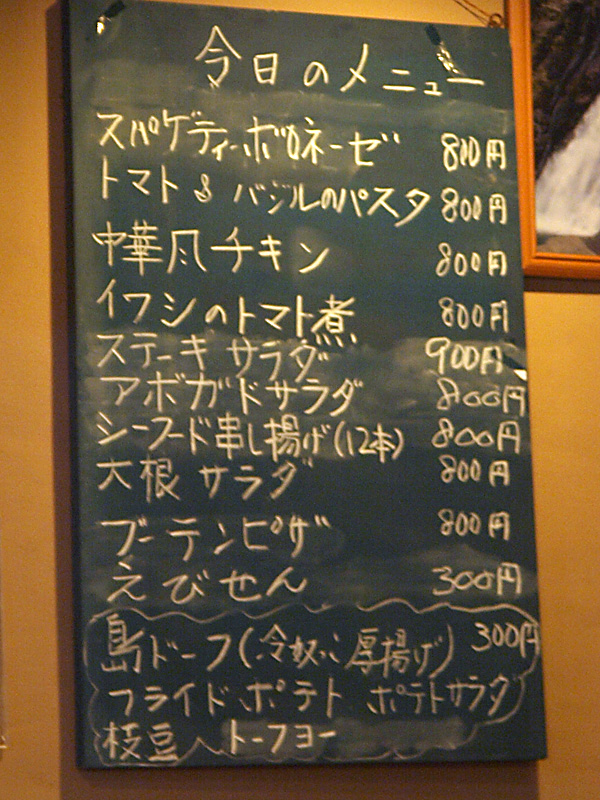 今日のメニュー
スパゲティーボロネーゼ 800円
トマト&バジルのパスタ 800円
中華風チキン 800円
イワシのトマト煮 800円
ステーキサラダ 900円
アボガドサラダ 800円
シーフード串し揚げ(12本) 800円
大根サラダ 800円
ブーテンピザ 800円
えびせん 300円
島ドーフ(冷奴 厚揚げ) 300円
フライドポテト ポテトサラダ
枝豆 トーフヨー